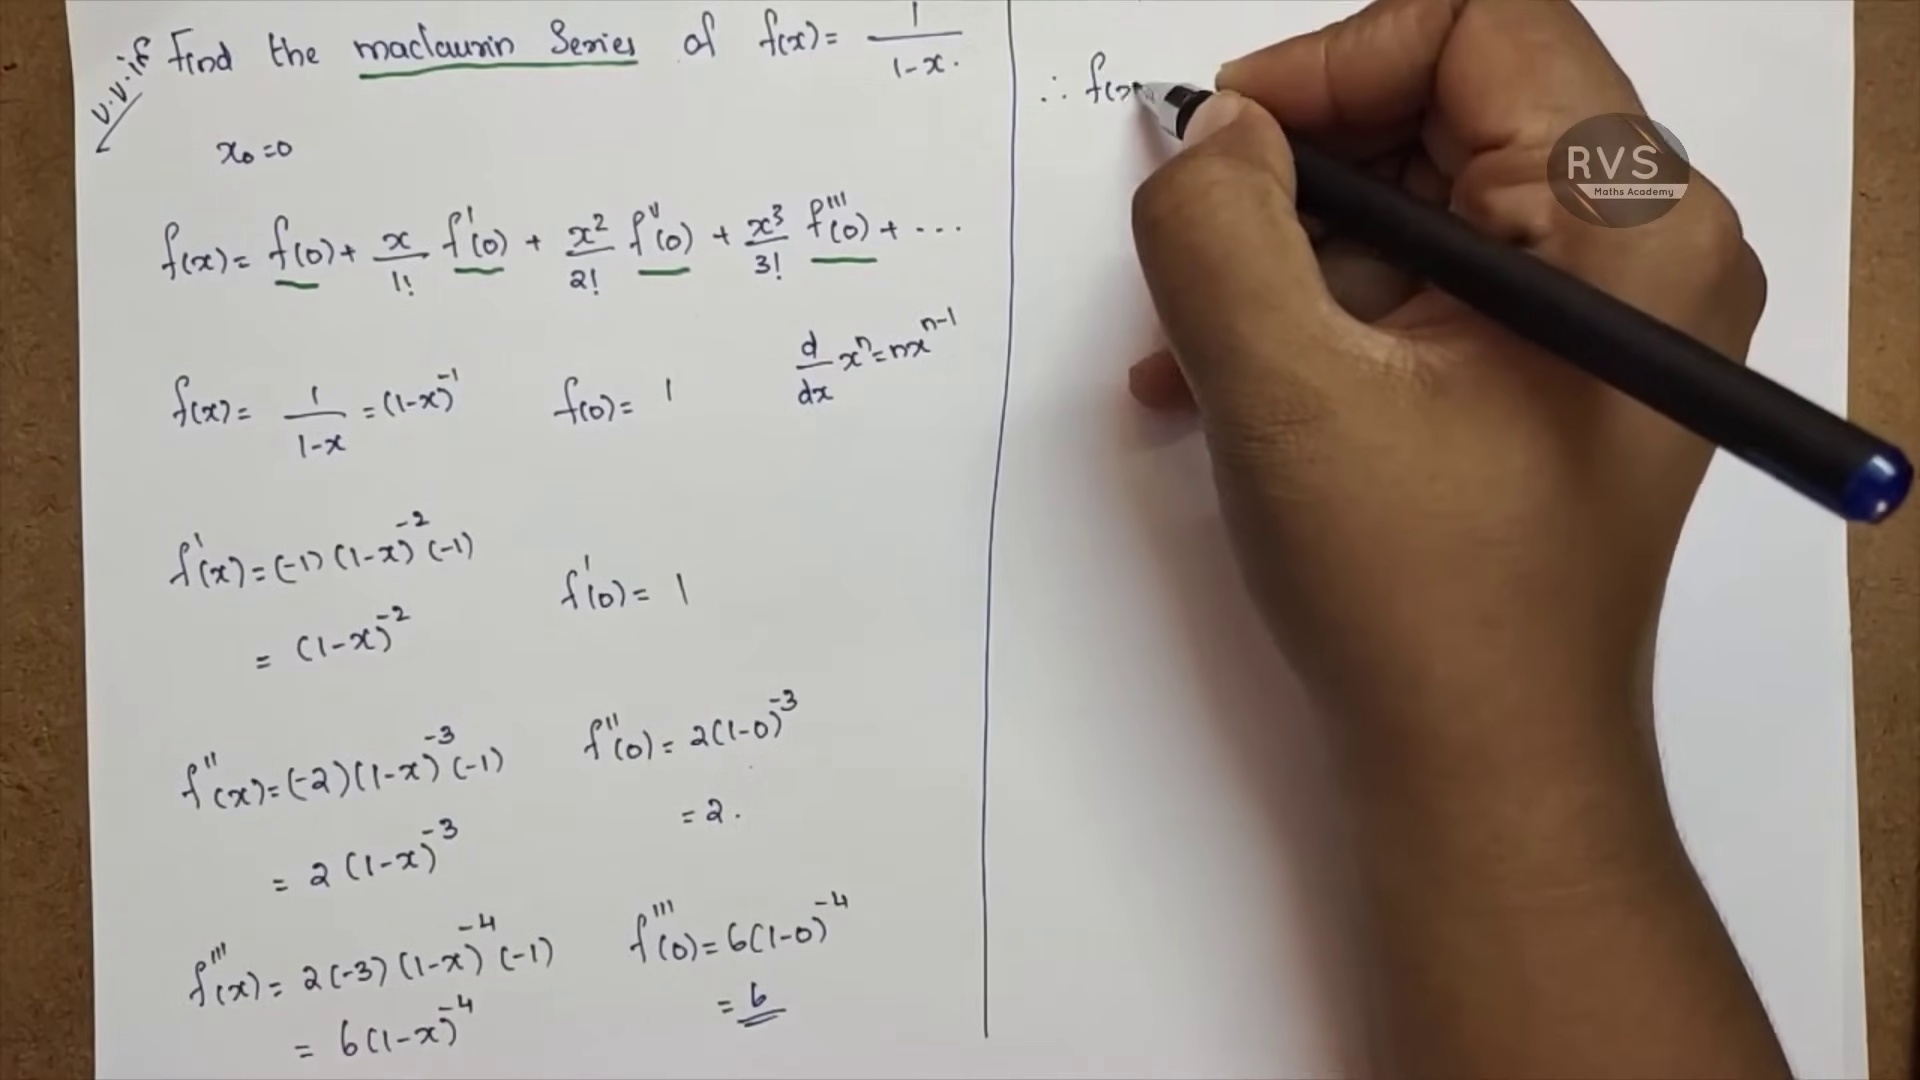 v.v.if Find the maclaurin Series of f(x) = 1/1-x.
x₀=0
f(x) = f(0) + x/1! f'(0) + x²/2! f''(0) + x³/3! f'''(0) + ...
d/dx xⁿ = nxⁿ⁻¹
f(x) = 1/1-x = (1-x)⁻¹ f(0) = 1
f'(x) = (-1)(1-x)⁻²(-1)
= (1-x)⁻² f'(0) = 1
f''(x) = (-2)(1-x)⁻³(-1) f''(0) = 2(1-0)⁻³
= 2(1-x)⁻³ = 2.
f'''(x) = 2(-3)(1-x)⁻⁴(-1) f'''(0) = 6(1-0)⁻⁴
= 6(1-x)⁻⁴ = 6
∴ f(x
RVS
Maths Academy